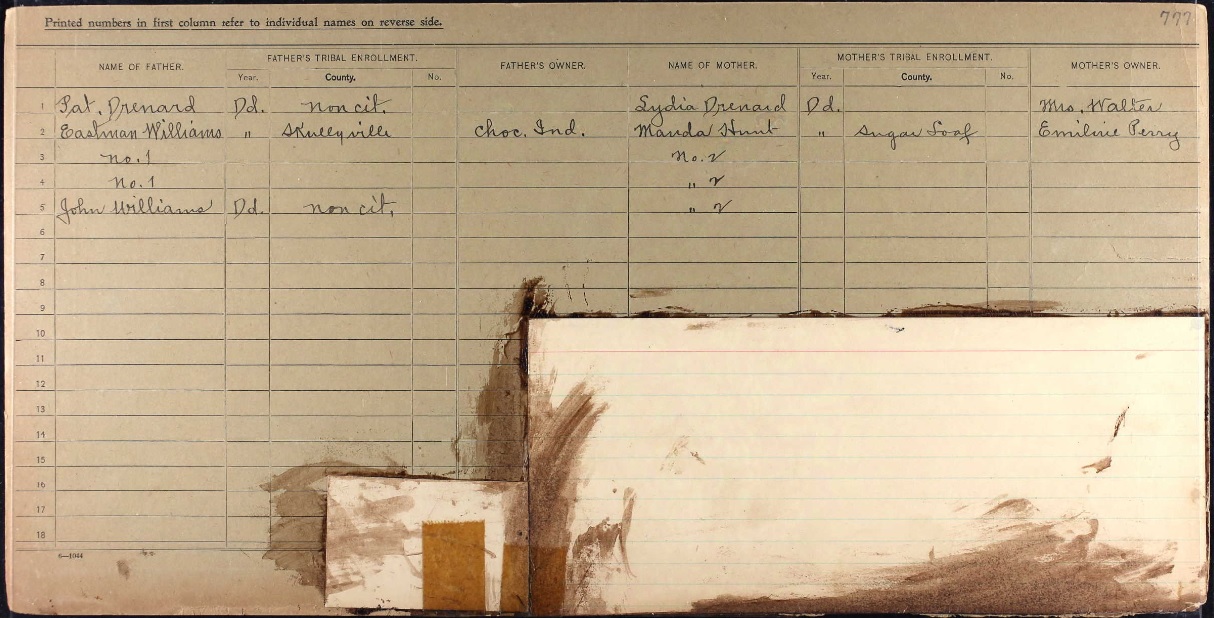 777
Printed numbers in first column refer to individual names on reverse side.
NAME OF FATHER. FATHER'S TRIBAL ENROLLMENT. FATHER'S OWNER. NAME OF MOTHER. MOTHER'S TRIBAL ENROLLMENT. MOTHER'S OWNER.
Year. County. No. Year. County. No.
1 Pat. Drenard Dd. non cit. Lydia Drenard Dd. Mrs. Walter
2 Eastman Williams " Skullyville Choc. Ind. Manda Hunt " Sugar Loaf Emiline Perry
3 no. 1 No. 2
4 no. 1 " 2
5 John Williams Dd. non cit. " 2
6
7
8
9
10
11
12
13
14
15
16
17
18
6—1044